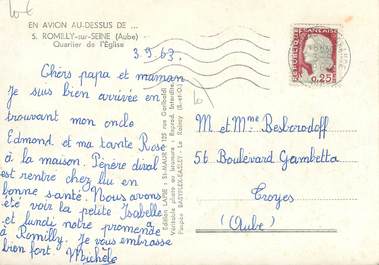 EN AVION AU-DESSUS DE ...
5. ROMILLY-sur-SEINE (Aube)
Quartier de l'Eglise
3.9.63.
Chers papa et maman
Je suis bien arrivée en
trouvant mon oncle
Edmond et ma tante Rose
à la maison. Pépère
est rentré chez lui en
bonne santé. Nous avons
été voir la petite Isabelle
et lundi notre promenade
à Romilly. Je vous embrasse
bien fort. Michèle
Edition LAPIE : St-MAUR - 125 rue Garibaldi
Véritable photo au bromure - Reprod. Interdite
FRANCAISE
0,25F
M et Mme Besborodoff
56 Boulevard Gambetta
Troyes
(Aube)